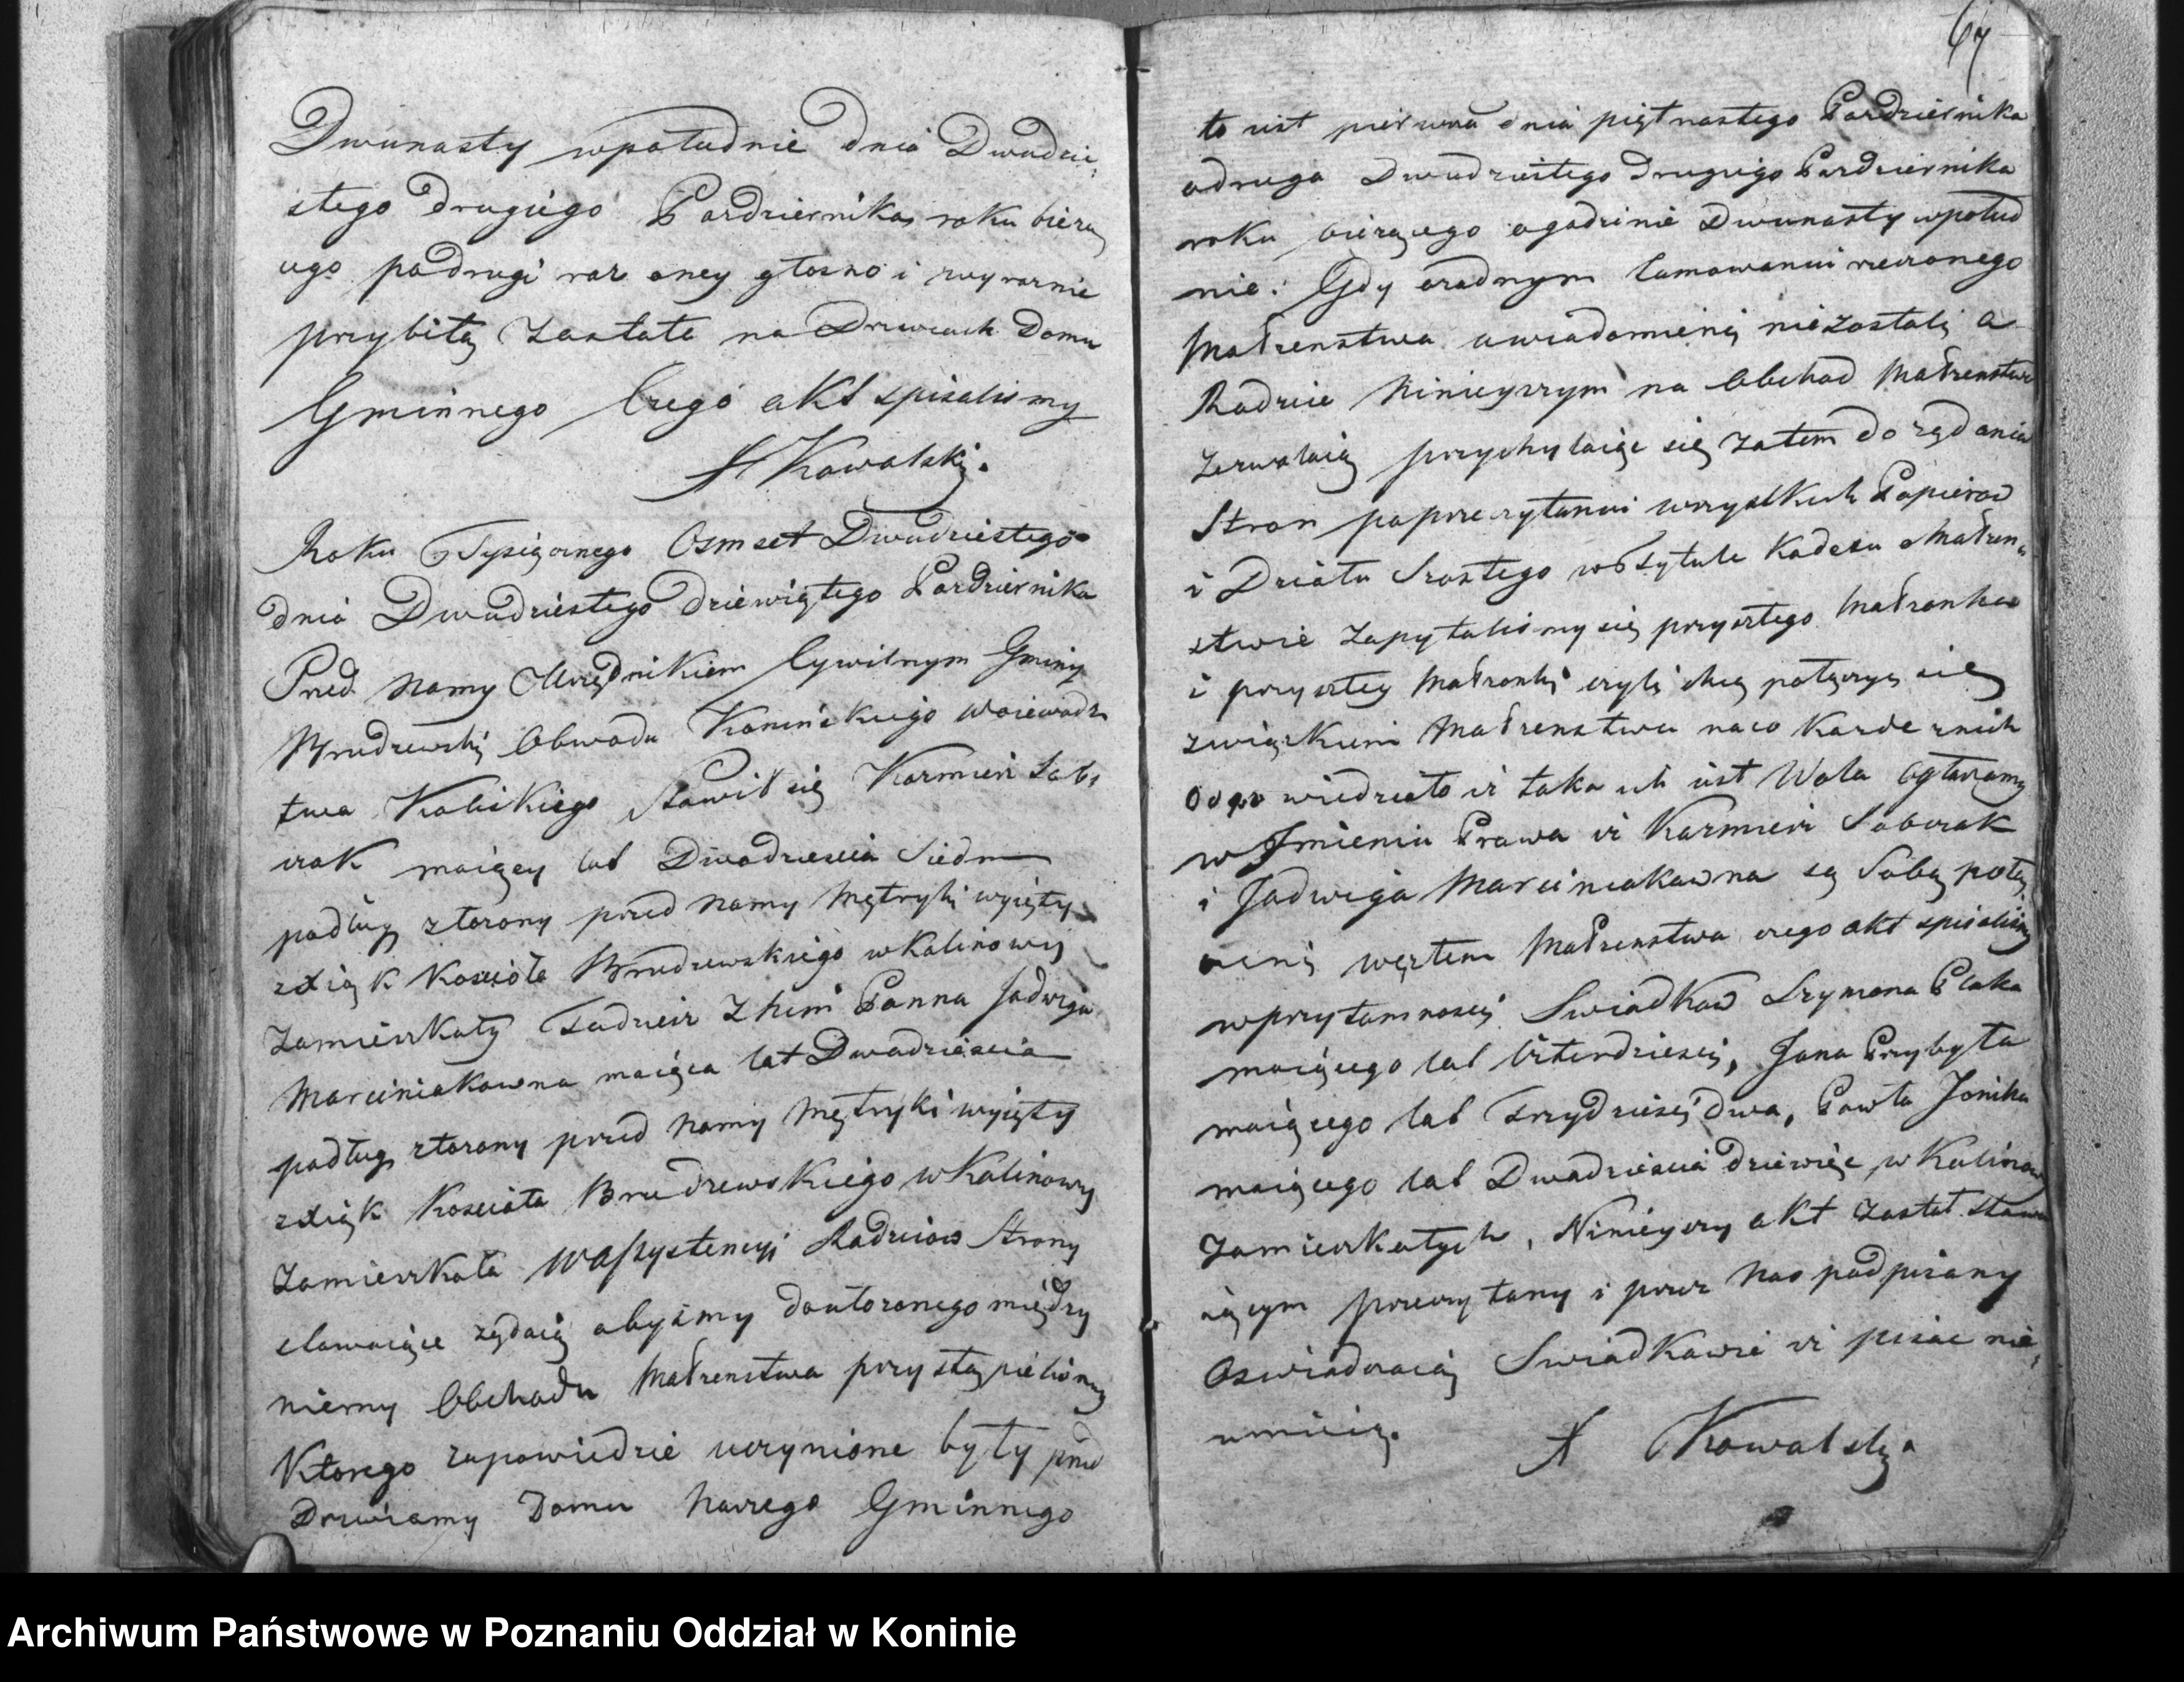 Dwunasty wpołudnie dnia Dwudzie
stego drugiego Pazdziernika roku bieżą
cego podrugi raz oney głosno i wyraznie
przybitą Zastała na Drzwiach Domu
Gminnego Czego akt spisalismy
A Kowalski.
Roku Tysiącznego Osmset Dwudziestego
dnia Dwudziestego dziewiątego Pazdziernika
Przed Namy Urzędnikiem Cywilnym Gminy
Brudzewski Obwodu Koninskiego Woiewodz
twa Kaliskiego Stawił się Kazmierz Sob
czak maiący lat Dwadziescia Siedm
podług złorony przed namy Mętryki wyięty
zxiąk Koscioła Brudzewskiego wKalinowy
Zamieszkały Tudziesz Z Nim Panna Jadwiga
Marciniakowna maiąca lat Dwadziescia
podług złorony przed Namy Mętryki wyięty
zxiąk Koscioła Brudzewskiego wKalinowy
Zamieszkała Wassystencyi Rodziców Strony
stawaiące rządaią abysmy doułoronego między
niemy Obchodu Małrenstwa przystąpielismy
Ktorego zapowiedzie uczynione były przed
Drzwiamy Domu Naszego Gminnego
67
to iest pierwsza dnia piętnastego Pazdziernika
adruga Dwudziestego Drugiego Pazdziernika
roku bieżącego ogodzinie Dwunasty wpołud
nie. Gdy oradnym tamowaniu rzeczonego
Małrenstwa uwiadomieni niezostali, a
Rodzice Ninieyszym na Obchod Małrenstwa
Zezwalaią przychylaiąc się Zatem do rządania
Stron poprzeczytaniu wszystkich Papierow
i Działu Szostego wTytule Kodexu oMałren
stwie Zapytalismy się przyszłego Małronka
i przyszłey Małronki czyli chcą połączyc się
związkiem Małrenstwa naco Karde znich
odpowiedziało iz taka ich iest Wola Ogłaszamy
w Jmieniu Prawa iz Kazmierz Sobczak
i Jadwiga Marciniakowna są Sobą połą
czeni węzłem Małrenstwa czego akt spisalismy
wprzytomnosci Swiadkow Szymona Ptaka
maiącego lat Czterdziesci, Jana Przybyła
maiącego lat Trzydziesci dwa, Pawła Jonika
maiącego lat Dwadziescia dziewięc wKalinowy
Zamieszkałych, Ninieyszy akt Zastał stawa
iącym przeczytany i przez Nas podpisany
Oswiadczaią Swiadkowie iz pisac nie
umieią.
A Kowalski.
Archiwum Państwowe w Poznaniu Oddział w Koninie